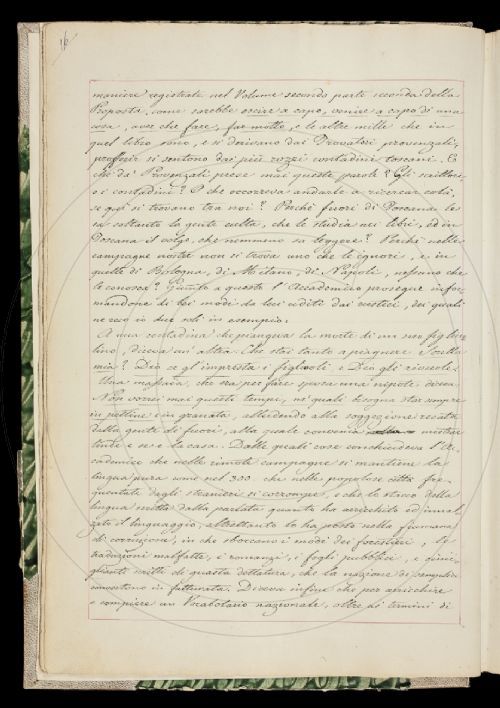 maniere registrate nel Volume secondo parte seconda della
Proposta, come sarebbe oscir a capo, venire a capo di una
cosa, aver che fare, far motto, e le altre mille che in
quel libro sono, e si dicivano dai Trovatori provenzali,
profferir si sentono dai più rozzi contadini toscani. E
chi da' Provenzali prese mai queste parole? Gli scrittori,
o i contadini? E che occorreva andarle a ricercar colà,
se qui si trovano tra noi? Perchè fuori di Toscana le
sa soltanto la gente culta, che le studia nei libri, ed in
Toscana il volgo che nemmeno sa leggere? Perchè nelle
campagne nostre non si trova uno che le ignori, e in
quelle di Bologna, di Milano, di Napoli, nessuno che
le conosca? Giunto a questo l'Accademico prosegue infor-
mandone di bei modi da lui uditi dai rustici, dei quali
ne reco io due soli in esempio.
A una contadina che piangeva la morte di un suo figliuo-
lino, diceva un' altra. Che stai tanto a piagnere Sorella
mia? Dio ce gl'impresta i figliuoli e Dio gli rivuole.
Una massaia, che era per fare sposa una nipote diceva
Non vorrei mai questi tempi, ne' quali bisogna star sempre
in pettine e in granata, alludendo alla soggezione recata
dalla gente di fuori, alla quale conveniva mostrar
linde e se e la casa. Dalle quali cose conchiudeva l'Ac-
cademico che nelle rimote campagne si mantiene la
lingua pura come nel 300. che nelle popolose città fre-
quentate dagli stranieri si corrompe, e che lo stacco della
lingua scritta dalla parlata quanto ha arricchito ed innal-
zato il linguaggio, altrettanto lo ha posto nella fiumana
di corruzione, in che sboccano i modi dei forestieri, le
traduzioni malfatte, i romanzi, i fogli pubblici, e simi-
glianti scritti di guasta dettatura, che la nazione
convertono in fatturata. Diceva infine che per arricchire
e compiere un Vocabolario nazionale, oltre i termini di